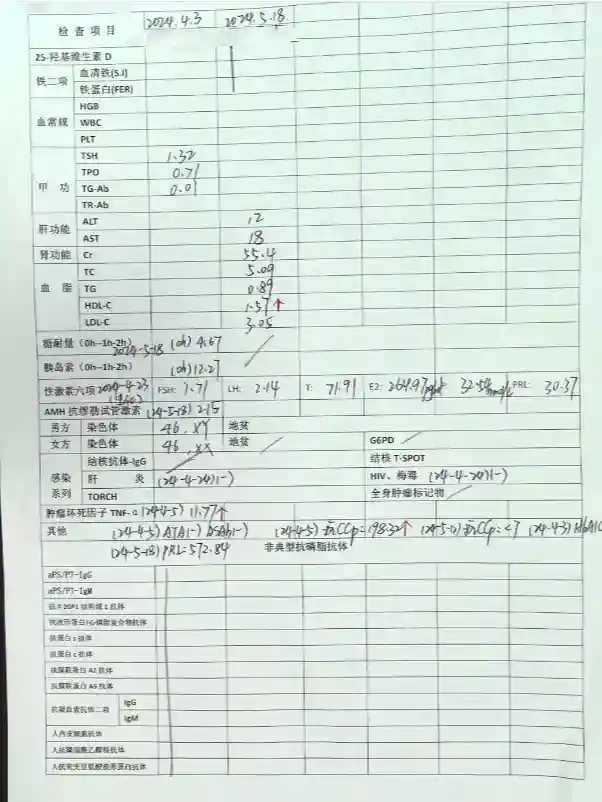 检查项目 2024.4.3 2024.5.18
25-羟基维生素 D
铁二项 血清铁(S.I)
铁蛋白(FER)
血常规 HGB
WBC
PLT
甲 功 TSH 1.32
TPO 0.71
TG-Ab 0.01
TR-Ab
肝功能 ALT 12
AST 18
肾功能 Cr 55.4
血 脂 TC 5.09
TG 0.89
HDL-C 1.57↑
LDL-C 3.05
糖耐量(0h--1h-2h) 2024-5-18 (0h) 4.67
胰岛素(0h--1h-2h) (0h) 12.27
性激素六项 2024-4-23 FSH: 1.71 LH: 2.14 T: 71.91 E2: 264.97 32.54 PRL: 30.37
AMH 抗缪勒试管激素 (24-5-18) 2.15
男方 染色体 46,XY 地贫
女方 染色体 46,XX 地贫 G6PD
感染系列 结核抗体-IgG 结核 T-SPOT
肝 炎 (24-4-24)(-) HIV、梅毒 (24-4-24)(-)
TORCH 全身肿瘤标记物
肿瘤坏死因子 TNF-α (24-4-5) 11.77↑
其他 (24-4-5) ATA(-) (24-4-5) 抗CCP=198.32↑ 抗CCP:<7 (24-4-3)
(24-5-18) PRL:572.84 非典型抗磷脂抗体
aPS/PT-IgG
aPS/PT-IgM
抗β2GP1结构域1抗体
抗波形蛋白/心磷脂复合物抗体
抗蛋白s抗体
抗蛋白c抗体
抗膜联蛋白A2抗体
抗膜联蛋白A5抗体
抗凝血素抗体二项 IgG
IgM
人内皮细胞抗体